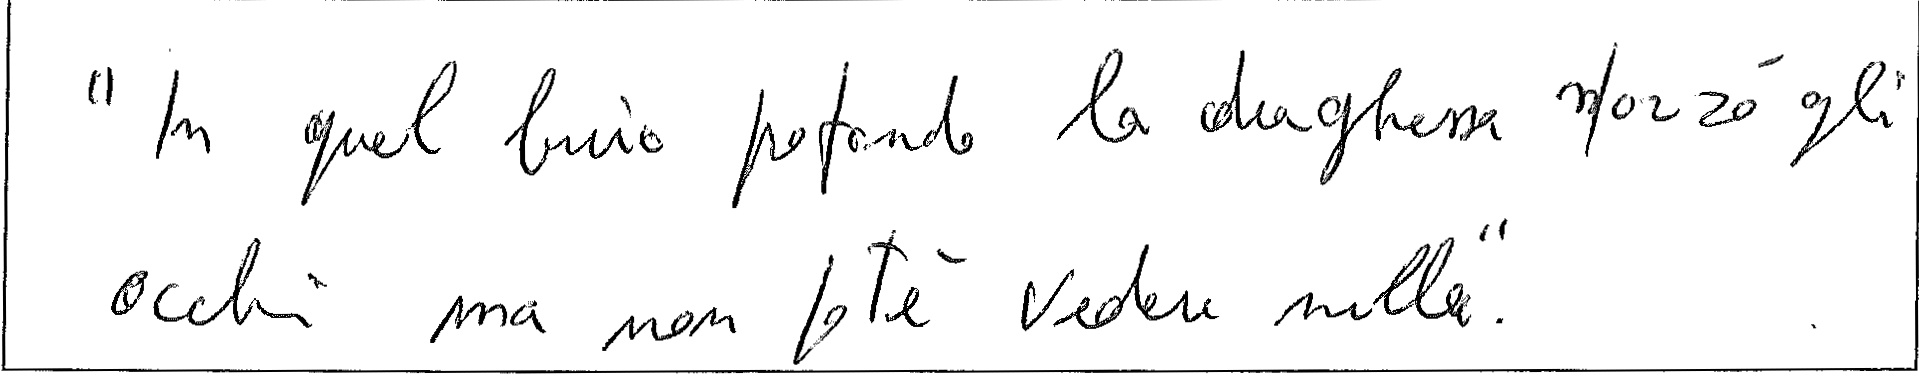 "In quel buio profondo la draghessa sforzò gli
occhi ma non potè vedere nulla".